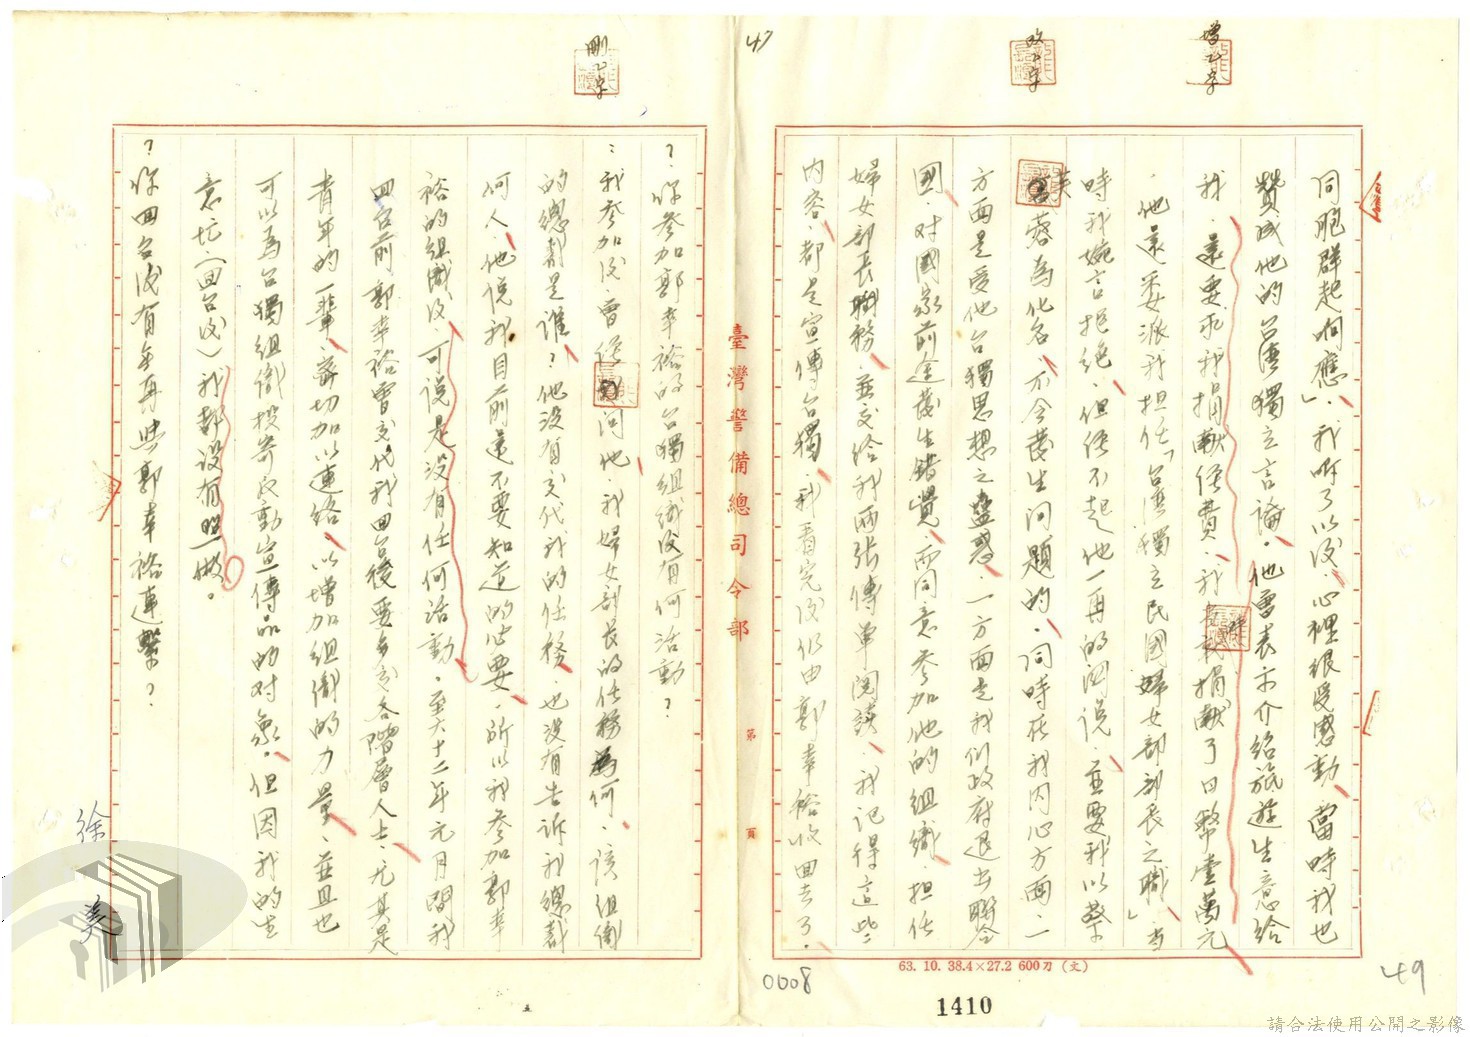 增乙字
改乙字
47
刪乙字
同胞群起响應」，我听了以後，心裡很受感動，當時我也
贊成他的台灣獨立言論。他曾表示介紹旅遊生意給
我，還要求我捐献經費，我捐献了日幣壹萬元
，他還委派我担任「台湾獨立民國婦女部部長之職」，当
時我婉言拒絶，但經不起他一再的游说，並要我以蔡
英蓉為化名，不会發生问題的，同時在我內心方面，一
方面是受他台獨思想之蠱惑，一方面是我们政府退出聯合
國，对國家前途發生錯覺，而同意参加他的組織，担任
婦女部長職務，並交給我两张傳单閱讀，我记得這些
内容，都是宣傳台獨，我看完後仍由郭幸裕收回去了。
臺灣警備總司令部
第 頁
？你參加郭幸裕的台獨組織後有何活動？
：我参加後，曾經问他，我婦女部長的任務為何，该组織
的總裁是谁？他没有交代我的任務，也没有告訴我總裁
何人，他说我目前還不要知道的必要，所以我参加郭幸
裕的组織後，可说是没有任何活動，至六十二年元月間我
回台前郭幸裕曾交代我回台後要多交各階層人士，尤其是
青年的一輩，密切加以連络，以增加组織的力量，並且也
可以為台獨组織投寄反動宣傳品的对象，但因我的生
意忙，（回台後）我都没有照做。
？你回台後有無再與郭幸裕連繫？
徐 美
63. 10. 38.4×27.2 600刀 (文)
0008
1410
49
請合法使用公開之影像